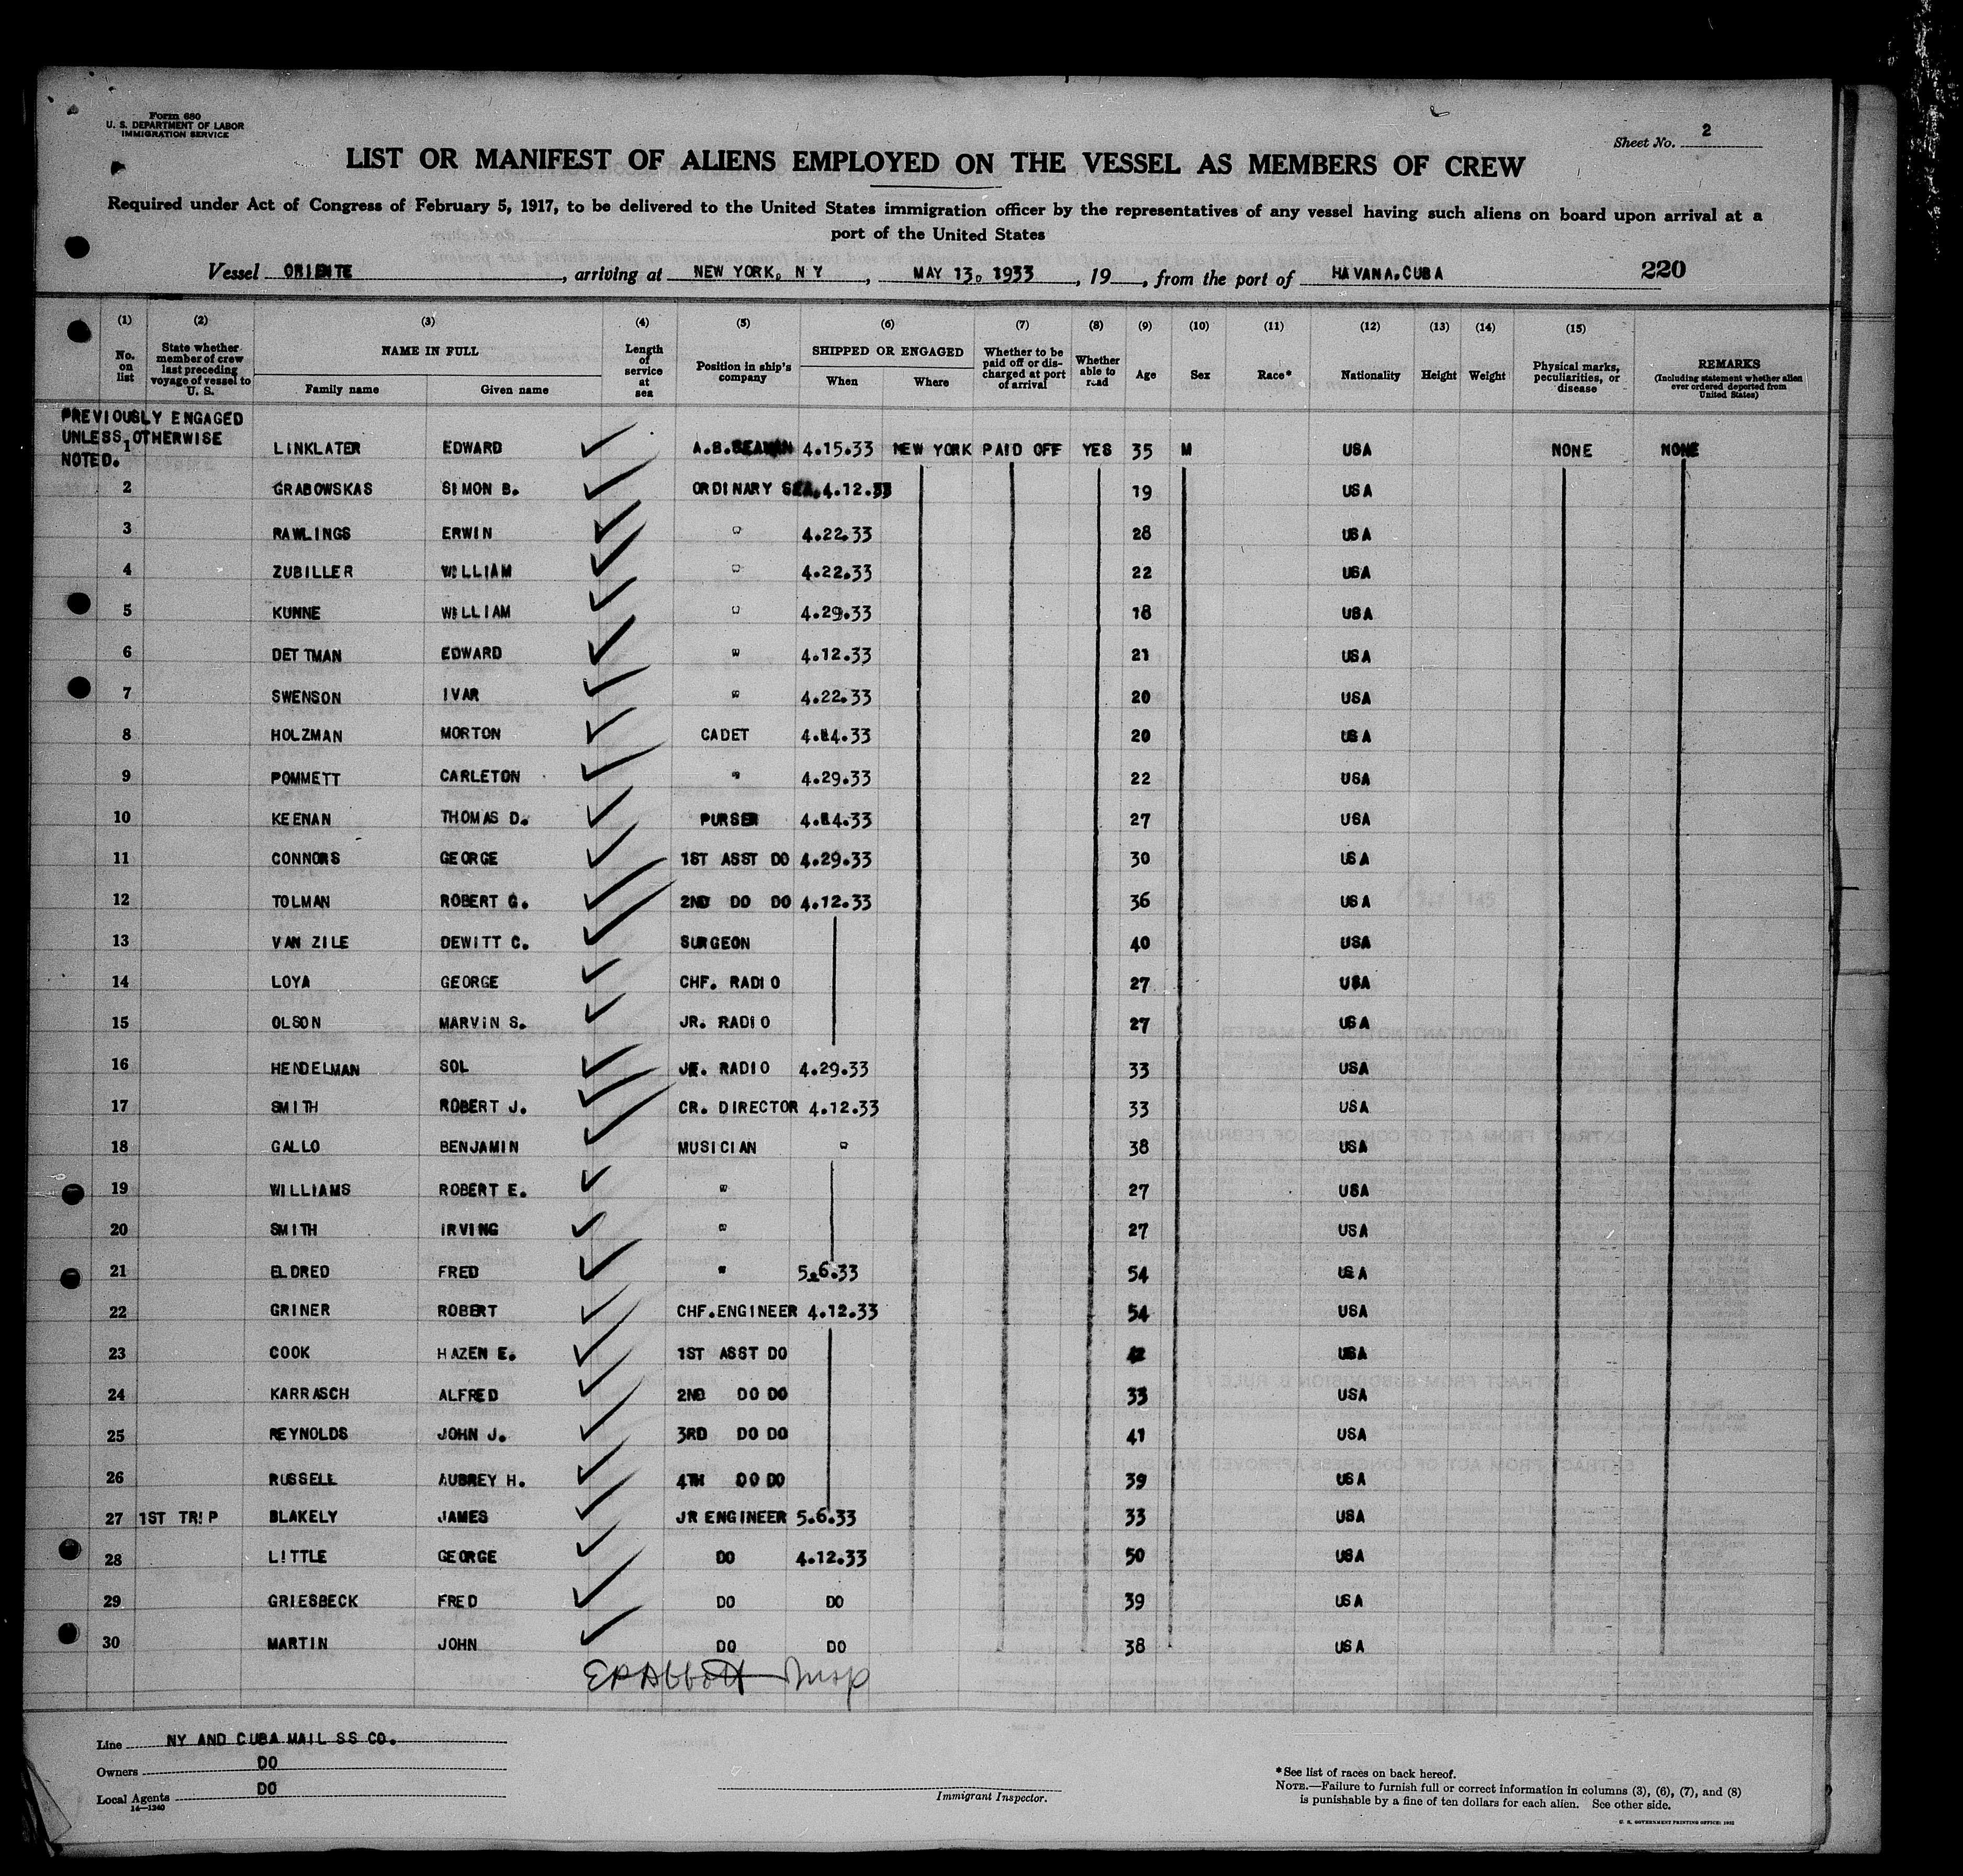 Form 680
U. S. DEPARTMENT OF LABOR
IMMIGRATION SERVICE
Sheet No. 2
LIST OR MANIFEST OF ALIENS EMPLOYED ON THE VESSEL AS MEMBERS OF CREW
Required under Act of Congress of February 5, 1917, to be delivered to the United States immigration officer by the representatives of any vessel having such aliens on board upon arrival at a
port of the United States
Vessel ORIENTE, arriving at NEW YORK, N Y, MAY 13, 1933, 19, from the port of HAVANA,CUBA 220
(1) (2) (3) (4) (5) (6) (7) (8) (9) (10) (11) (12) (13) (14) (15)
No. on list State whether member of crew last preceding voyage of vessel to U. S. NAME IN FULL Family name Given name Length of service at sea Position in ship's company SHIPPED OR ENGAGED When Where Whether to be paid off or discharged at port of arrival Whether able to read Age Sex Race* Nationality Height Weight Physical marks, peculiarities, or disease REMARKS (Including statement whether alien ever ordered deported from United States)
PREVIOUSLY ENGAGED
UNLESS OTHERWISE
NOTED.
1 LINKLATER EDWARD A.B.SEAMAN 4.15.33 NEW YORK PAID OFF YES 35 M USA NONE NONE
2 GRABOWSKAS SIMON B. ORDINARY SEA. 4.12.33 19 USA
3 RAWLINGS ERWIN " 4.22.33 28 USA
4 ZUBILLER WILLIAM " 4.22.33 22 USA
5 KUNNE WILLIAM " 4.29.33 18 USA
6 DETTMAN EDWARD " 4.12.33 21 USA
7 SWENSON IVAR " 4.22.33 20 USA
8 HOLZMAN MORTON CADET 20 USA
9 POMMETT CARLETON " 4.29.33 22 USA
10 KEENAN THOMAS D. PURSER 27 USA
11 CONNORS GEORGE 1ST ASST DO 4.29.33 30 USA
12 TOLMAN ROBERT G. 2ND DO DO 4.12.33 36 USA
13 VAN ZILE DEWITT C. SURGEON 40 USA
14 LOYA GEORGE CHF. RADIO 27 USA
15 OLSON MARVIN S. JR. RADIO 27 USA
16 HENDELMAN SOL JR. RADIO 4.29.33 33 USA
17 SMITH ROBERT J. CR. DIRECTOR 4.12.33 33 USA
18 GALLO BENJAMIN MUSICIAN " 38 USA
19 WILLIAMS ROBERT E. " 27 USA
20 SMITH IRVING " 27 USA
21 ELDRED FRED " 5.6.33 54 USA
22 GRINER ROBERT CHF.ENGINEER 4.12.33 54 USA
23 COOK HAZEN E. 1ST ASST DO 42 USA
24 KARRASCH ALFRED 2ND DO DO 33 USA
25 REYNOLDS JOHN J. 3RD DO DO 41 USA
26 RUSSELL AUBREY H. 4TH DO DO 39 USA
27 1ST TRIP BLAKELY JAMES JR ENGINEER 5.6.33 33 USA
28 LITTLE GEORGE DO 4.12.33 50 USA
29 GRIESBECK FRED DO DO 39 USA
30 MARTIN JOHN DO DO 38 USA
EP Abbott Insp
Line NY AND CUBA MAIL SS CO.
Owners DO
Local Agents DO
14—1240
Immigrant Inspector.
*See list of races on back hereof.
NOTE.—Failure to furnish full or correct information in columns (3), (6), (7), and (8)
is punishable by a fine of ten dollars for each alien. See other side.
U. S. GOVERNMENT PRINTING OFFICE: 1932